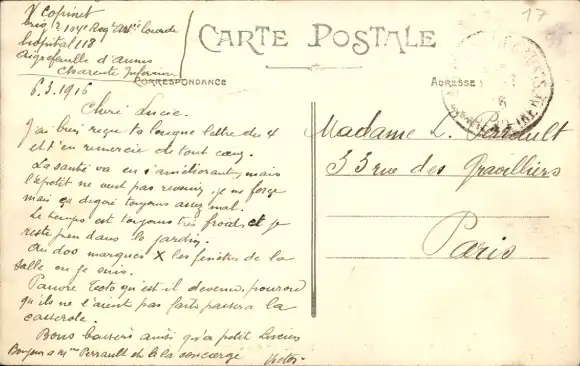 V Copinet
brig. 104e Reg. Art. Lourde
hopital 118
Aigrefeuille d'Aunis
Charente Inferieure
CARTE POSTALE
CORRESPONDANCE
ADRESSE
17
6.3.1916
Cheré Lucie.
J'ai bien reçue ta longue lettre du 4
et t'en remercie de tout coeur.
La santé va en s'améliorant, mais
l'apetit ne veut pas revenir, je me force
mais ça digére toujours assez mal.
Le temps est toujours très froid, et je
reste peu dans le jardin.
Au dos marqués X les fenêtres de la
salle ou je suis.
Pauvre Toto qu'est il devenu, pourvu
qu'ils ne l'aient pas fait passer a la
casserole.
Bons baisers ainsi qu'a petit Lucien
Bonjour a Mme Perrault et la concierge
Victor
Madame L. Perrault
33 rue des Gravilliers
Paris